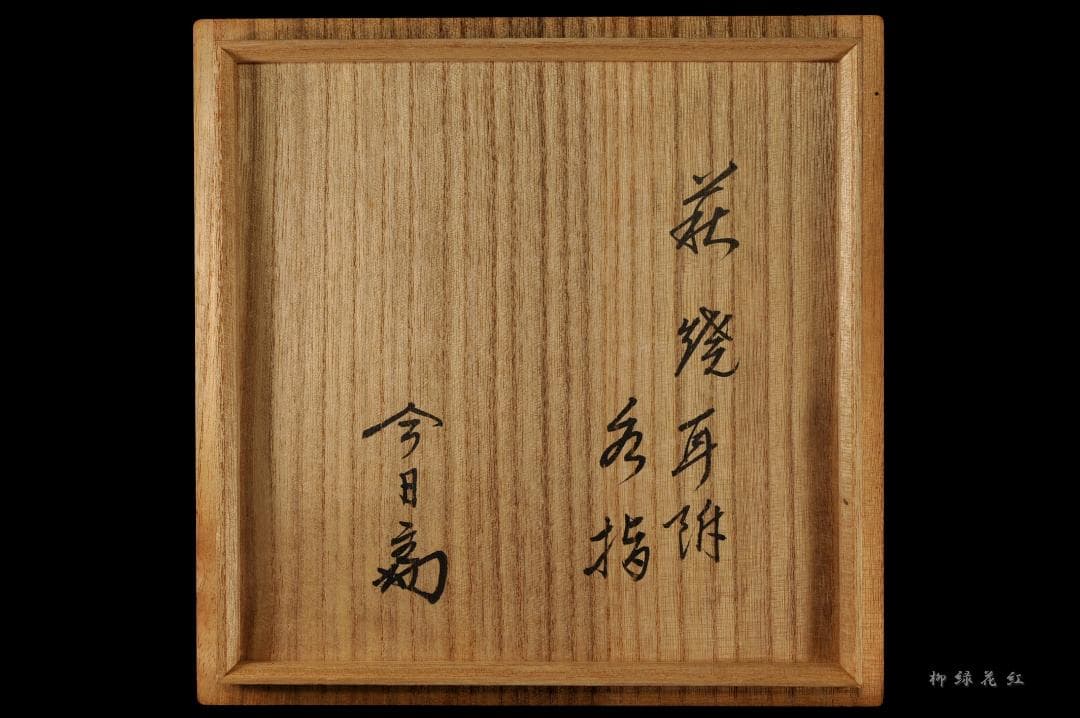 萩焼耳附
水指
今日庵
柳緑花紅